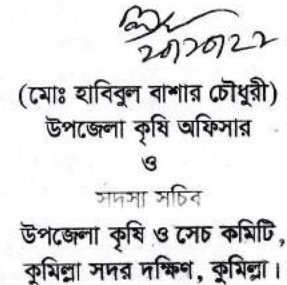 (মোঃ হাবিবুল বাশার চৌধুরী)
উপজেলা কৃষি অফিসার
ও
সদস্য সচিব
উপজেলা কৃষি ও সেচ কমিটি,
কুমিল্লা সদর দক্ষিণ, কুমিল্লা।